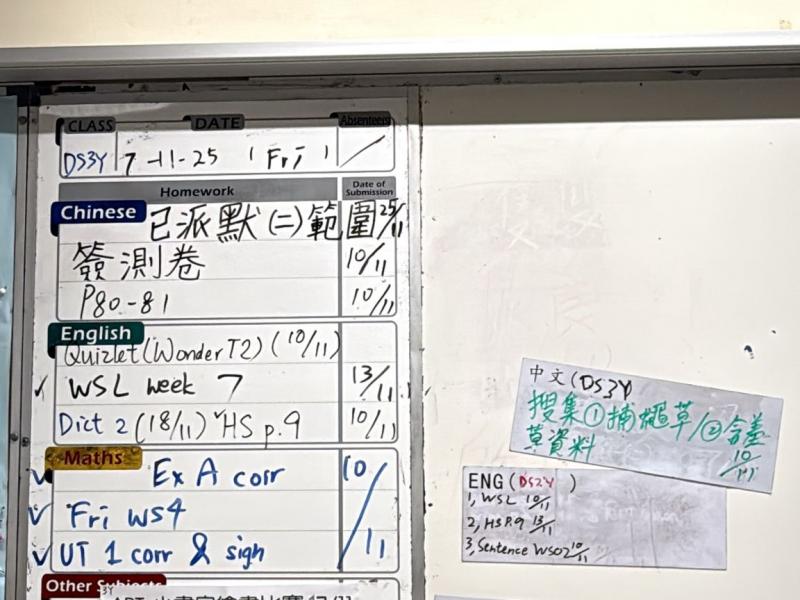 CLASS DATE Absentees
DS3Y 7-11-25 (Fri) /
Homework Date of Submission
Chinese 已派默(二)範圍 25/11
簽測卷 10/11
P80-81 10/11
English
Quizlet(Wonder T2) (10/11)
✓ WSL week 7 13/11
Dict 2 (18/11) ✓HS p.9 10/11
Maths
✓ Ex A corr 10/11
✓ Fri WS4
✓ UT 1 corr & sign
Other Subjects
中文(DS3Y
搜集①捕蠅草/②含羞
草資料
10/11
ENG (DS2Y )
1, WSL 10/11
2, HS P.9 13/11
3, Sentence WS02 10/11